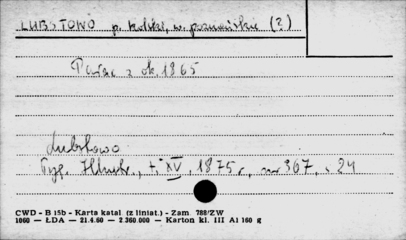 LUBSTOWO p. kolski, w. poznańskie (?)
Pałac z ok. 1865
Lubstowo
Tyg. Illustr., t. XV, 1875 r., nr 367, s. 24
CWD - B 15b - Karta katal. (z liniat.) - Zam. 788/ZW
1060 — ŁDA — 21.4.60 — 2.360.000 — Karton kl. III A1 160 g